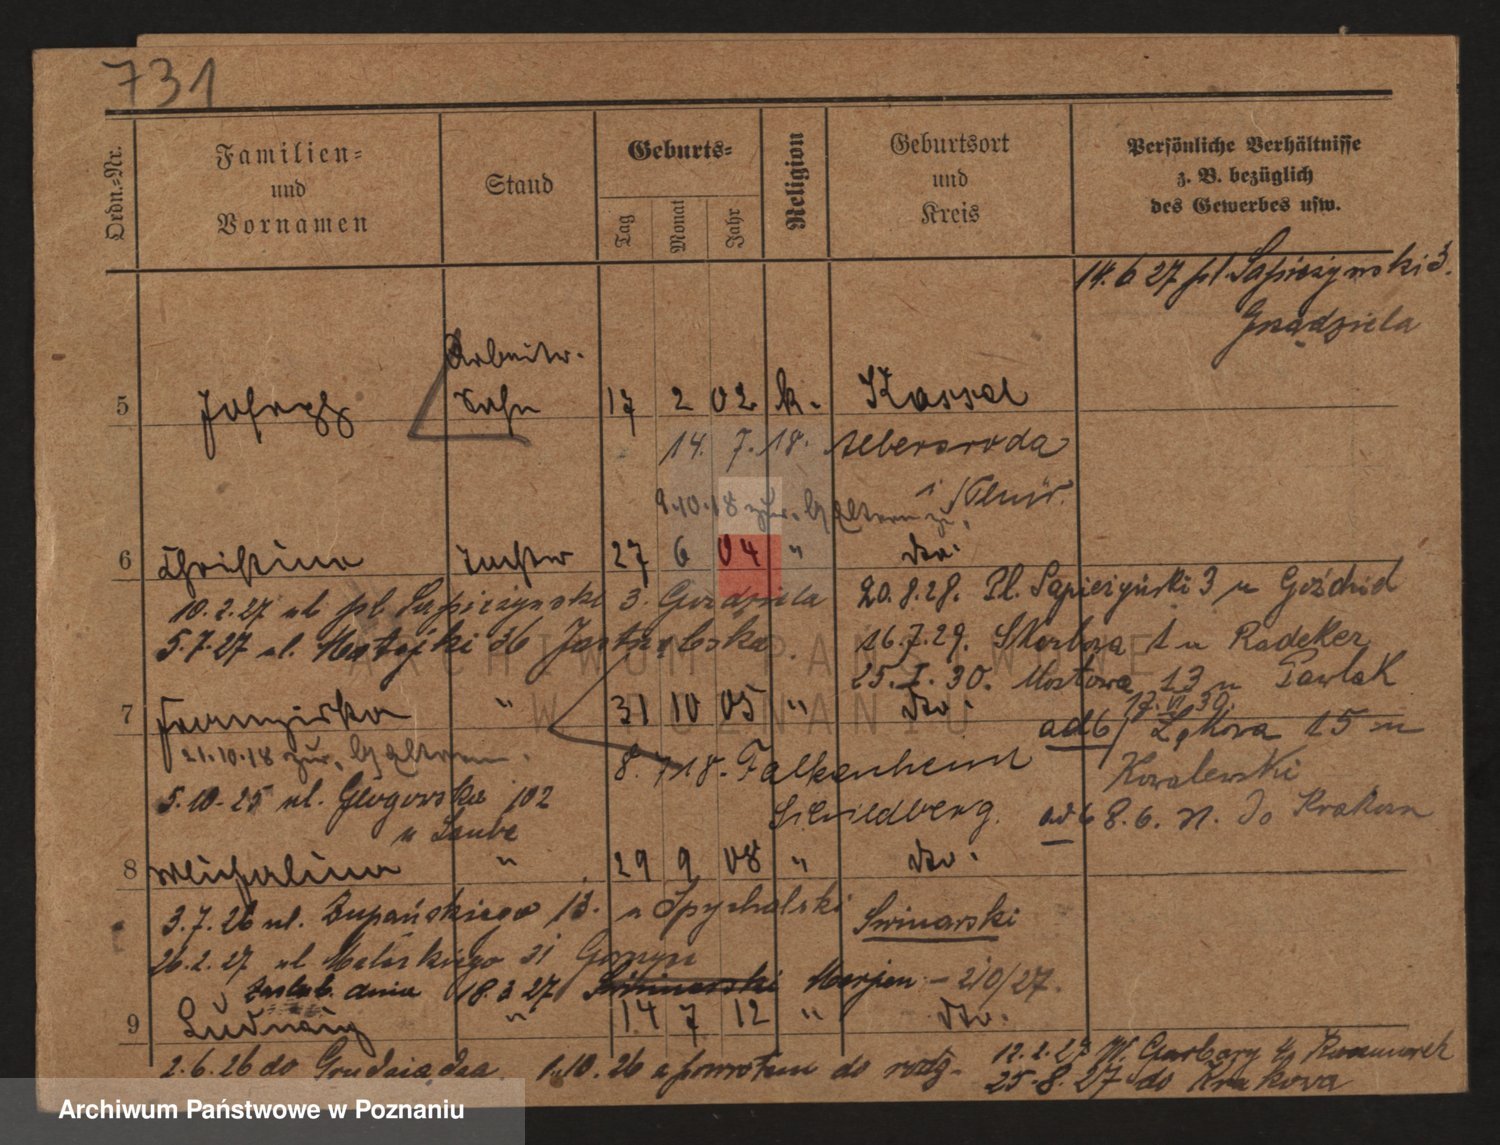 731
Ordn.-Nr.
Familien-
und
Vornamen
Stand
Geburts-
Tag
Monat
Jahr
Religion
Geburtsort
und
Kreis
Persönliche Verhältnisse
z. B. bezüglich
des Gewerbes usw.
14.6 27 pl. Sapieżynski 3.
Gnądziela
Arbeitr.
5 Joseph Sohn 17 2 02 k. Kassel
14. 7. 18. Albersroda
9.10.18 zur. Eltern
6 Christina Tochter 27 6 04 " dto.
10.2.27 ul pl. Sapieżynski 3. Gnądziela
20.8.28. Pl. Sapieżyński 3 u
5.7.27 ul. Matejki 36
16.7.29. 1 u Radeker
25.I.30. Mostowa 13 u Pawlak
7 Franziska " 31 10 05 " dto.
17.VI.30.
ad6/ Łąkowa 15 u
Kowalewski
21.10.18 zur. Eltern.
8. 7 18. Falkenhein
Schildberg.
ad6 8.6. 31. do Krakow
5.10.25 ul. Głogowska 102
u
8 Michalina " 29 9 08 " dto.
3.7.26 ul. Żupańskiego 13. u Spychalski
Swinarski
26.2.27 ul 31
Zaślub. dnia 18.3 27 Swinarski Marjan - 210/27.
9 Ludwig " 14 7 12 " dto.
2.6.26 do Grudziądza 1.10.26 z powrotem do rodz.
12.2.27 W. Garbary
25.8.27 do Krakowa
ARCHIWUM PAŃSTWOWE
W POZNANIU
Archiwum Państwowe w Poznaniu